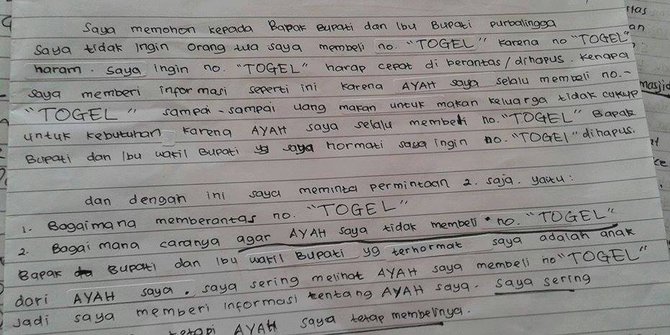 Saya memohon kepada Bapak Bupati dan Ibu Bupati purbalingga
Saya tidak Ingin orang tua saya membeli no. "TOGEL" karena no "TOGEL"
haram. saya ingin no. "TOGEL" harap cepat di berantas/dihapus. kenapa
saya memberi informasi seperti ini karena AYAH saya selalu membeli no.-
"TOGEL" sampai-sampai uang makan untuk makan keluarga tidak cukup
untuk kebutuhan karena AYAH saya selalu membeli no. "TOGEL" Bapak
Bupati dan Ibu wakil Bupati yg saya hormati saya ingin no. "TOGEL" dihapus.
dan dengan ini saya meminta permintaan 2. saja. yaitu:
1. Bagaimana memberantas no. "TOGEL"
2. Bagai mana caranya agar AYAH saya tidak membeli no. "TOGEL"
Bapak Bupati dan Ibu wakil Bupati yg terhormat saya adalah anak
dari AYAH saya. saya sering melihat AYAH saya membeli no "TOGEL"
Jadi saya memberi informasi tentang AYAH saya. saya sering
tetapi AYAH saya tetap membelinya.